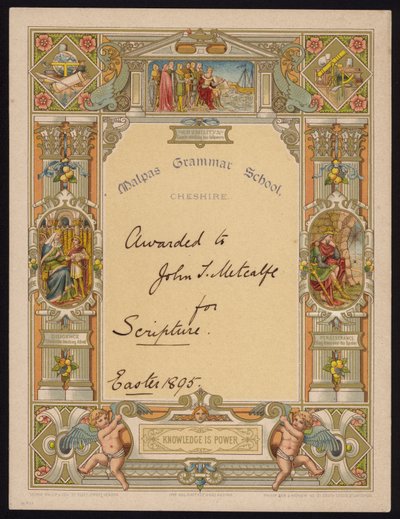 HUMILITY
Malpas Grammar School,
CHESHIRE.
Awarded to
John T. Metcalfe
for
Scripture.
Easter 1895.
DILIGENCE
PERSEVERANCE
KNOWLEDGE IS POWER